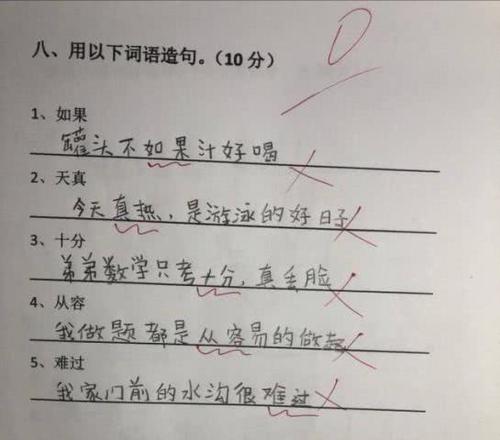 0
八、用以下词语造句。（10 分）
1、如果
罐头不如果汁好喝
2、天真
今天真热，是游泳的好日子
3、十分
弟弟数学只考十分，真丢脸
4、从容
我做题都是从容易的做起
5、难过
我家门前的水沟很难过